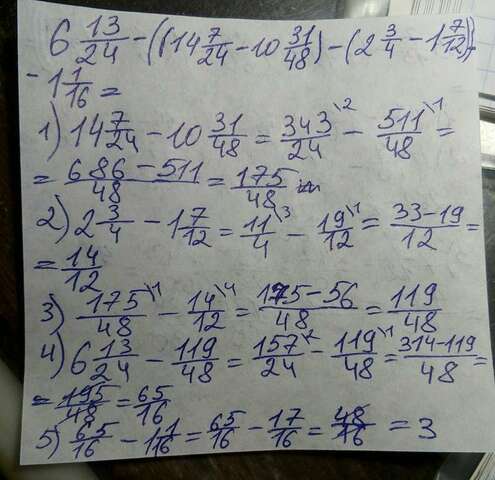 6 13/24 - ((14 7/24 - 10 31/48) - (2 3/4 - 1 7/12)) -
- 1 1/16 =
1) 14 7/24 - 10 31/48 = 343/24 \2 - 511/48 \1 =
= 686 - 511/48 = 175/48
2) 2 3/4 - 1 7/12 = 11/4 \3 - 19/12 \1 = 33-19/12 =
= 14/12
3) 175/48 \1 - 14/12 \4 = 175-56/48 = 119/48
4) 6 13/24 - 119/48 = 157/24 \2 - 119/48 \1 = 314-119/48 =
= 195/48 = 65/16
5) 65/16 - 1 1/16 = 65/16 - 17/16 = 48/16 = 3